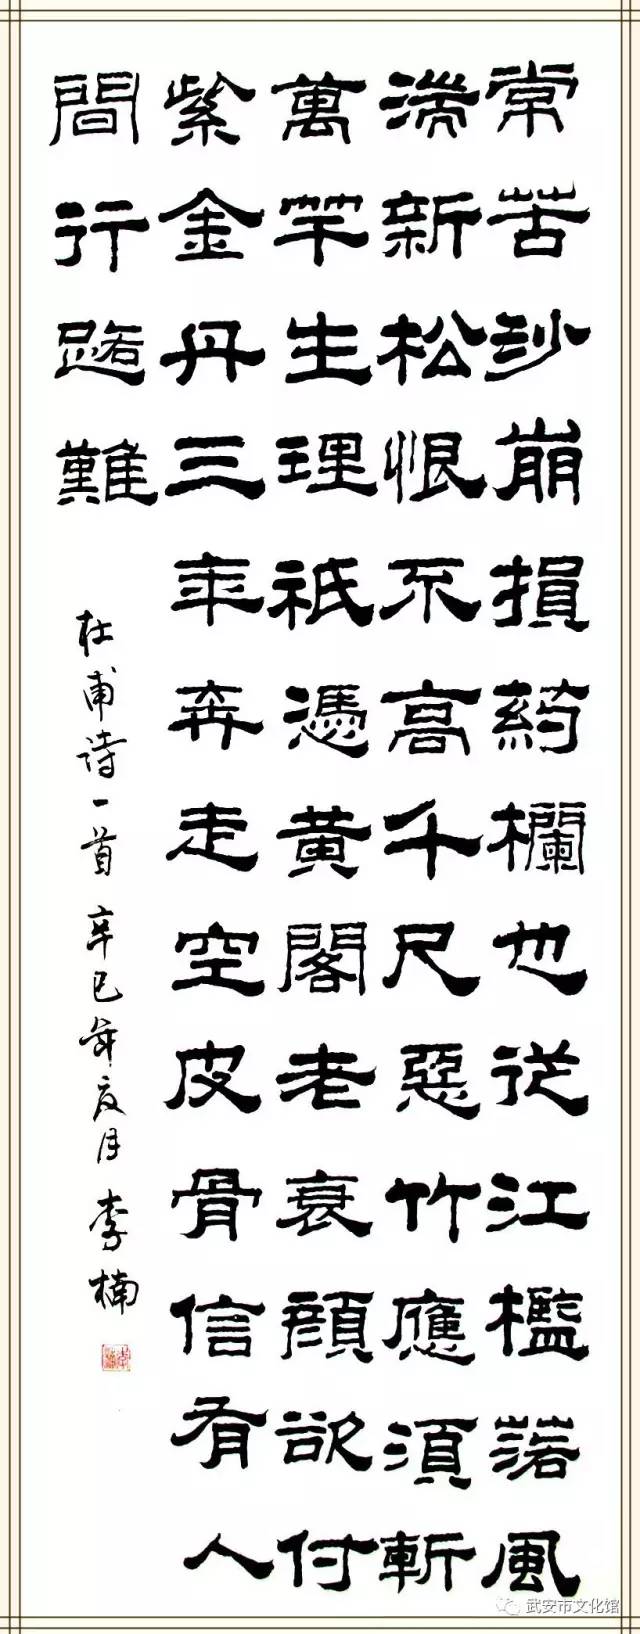 常苦沙崩損葯欄也從江檻落風
湍新松恨不高千尺惡竹應須斬
萬竿生理祇憑黃閣老衰顏欲付
紫金丹三年奔走空皮骨信有人
間行路難
杜甫诗一首 辛巳年夏月 李楠
武安市文化馆